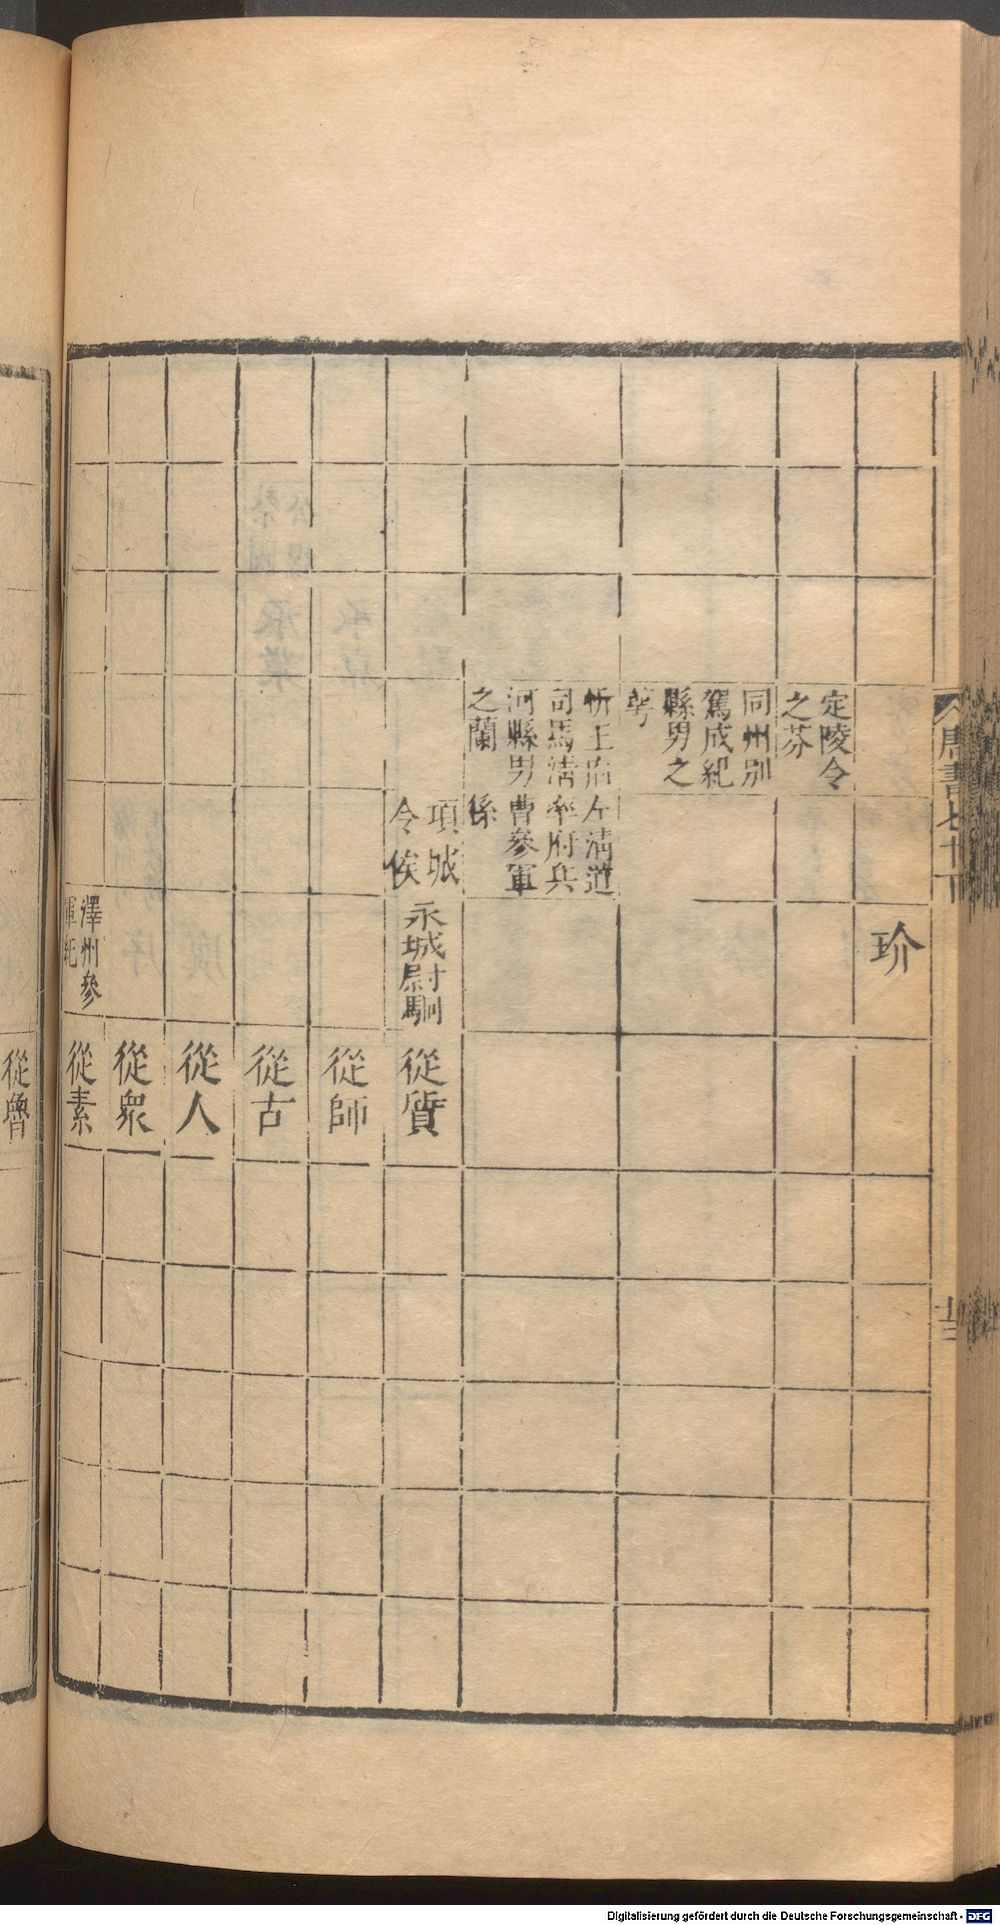 唐書七十下
十三
珍
定陵令
之芬
同州別
駕成紀
縣男之
萼
忻王府
司馬清
河縣男
之蘭
左清道
率府兵
曹參軍
係
項城
令俟
永城
尉馴
從質
從師
從古
從人
從眾
澤州參
軍紀
從素
從魯
Digitalisierung gefördert durch die Deutsche Forschungsgemeinschaft - DFG